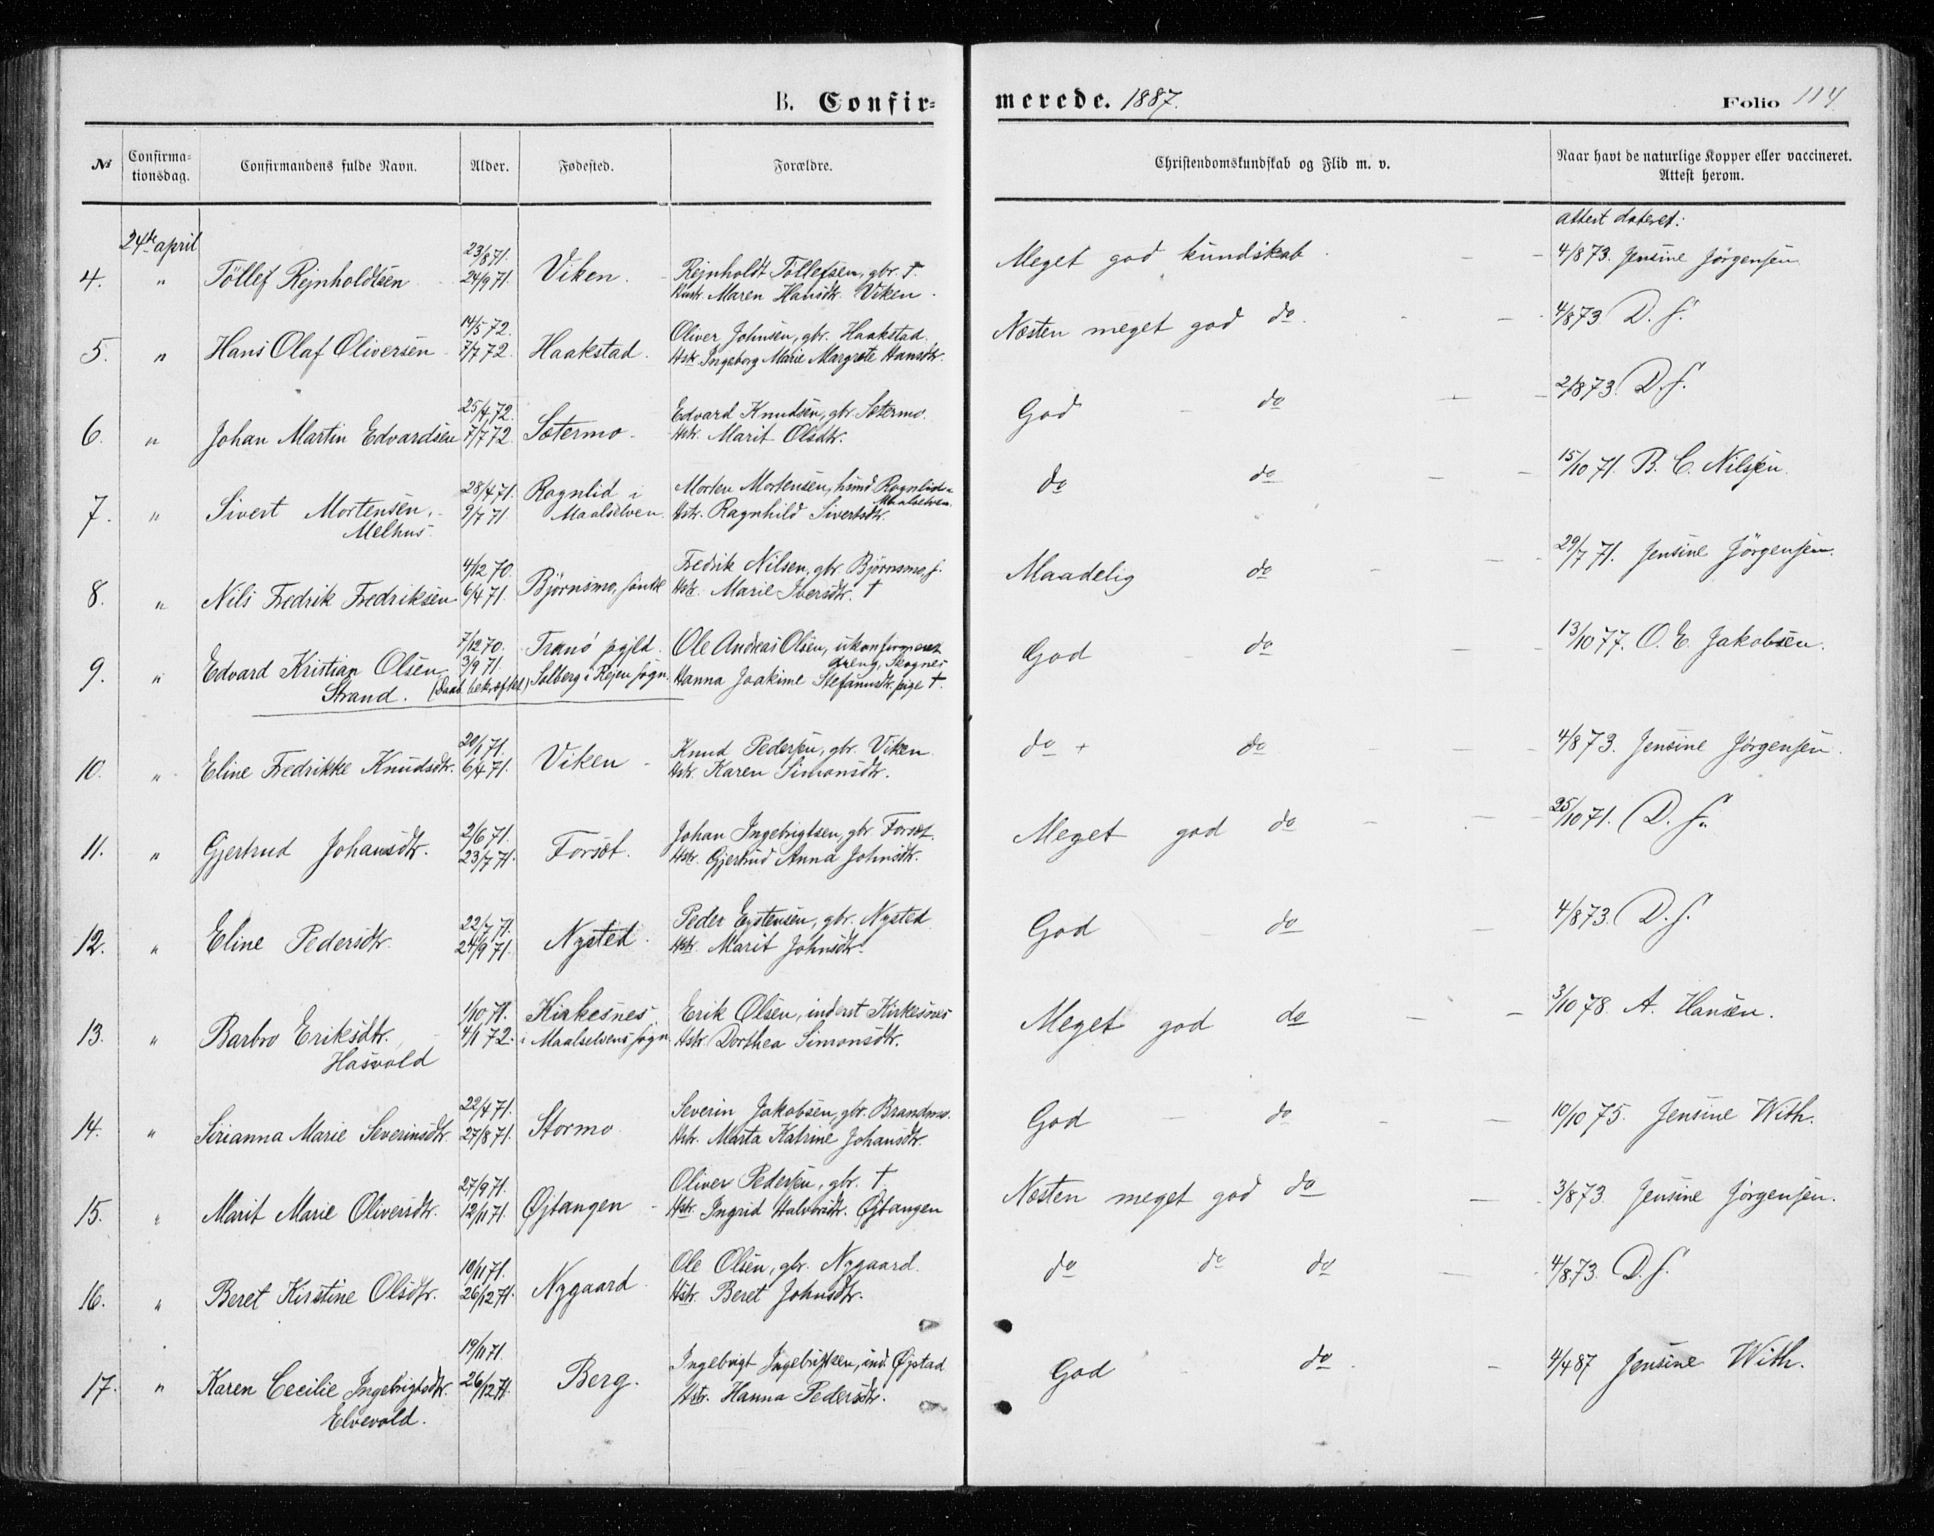 B. Confir=
merede. 1887.
Folio 114.
№ Confirma=tionsdag. Confirmandens fulde Navn. Alder. Fødested. Forældre. Christendomskundskab og Flid m. v. Naar havt de naturlige Kopper eller vaccineret. Attest herom.
24de april
attest dateret:
4. " Töllef Rejnholdtsen 23/8 71. 24/9 71. Viken. Rejnholdt Töllefsen, gbr. †.
Hustr. Maren Hansdtr. Viken.
Meget god kundskab 4/8 73. Jensine Jørgensen
5. " Hans Olaf Oliversen 14/5 72. 7/7 72. Haakstad. Oliver Johnsen, gbr. Haakstad.
Hstr. Ingeborg Marie Margrete Hansdtr.
Næsten meget god do 4/8 73 D. S.
6. " Johan Martin Edvardsen 25/4 72. 7/7 72. Sætermo. Edvard Knudsen, gbr. Sætermo.
Hstr. Marit Olsdtr.
God do 2/8 73. D. S.
7. " Sivert Mortensen, Melhus. 28/4 71. 9/7 71. Rognlid i Maalselven. Morten Mortensen, husmd Rognlid i Maalselven.
Hstr. Ragnhild Sivertsdtr.
do do 15/10 71. B. C. Nilsen.
8. " Nils Fredrik Fredriksen 4/12 70. 6/4 71. Björnsmo, Fredrik Nilsen, gbr. Björnsmo,
Hstr. Marie Ibersdtr. †
Maadelig do 29/7 71. Jensine Jörgensen.
9. " Edvard Kristian Olsen Strand. (Daab bekræftet) 7/12 70. 3/9 71. Tranö pgjld. Solberg i Rejen sogn. Ole Andreas Olsen, ukonfirmeret dreng, Skognes
Hanna Joakime Stefanusdtr. pige †.
God do 13/10 77. O. E. Jakobsen.
10. " Eline Fredrikke Knudsdtr. 20/1 71. 6/4 71. Viken Knud Pedersen, gbr. Viken.
Hstr. Karen Simonsdtr.
do + do 4/8 73. Jensine Jørgensen.
11. " Gjertrud Johansdtr. 2/6 71. 23/7 71. Forsöt. Johan Ingebrigtsen, gbr. Forsöt.
Hstr. Gjertrud Anna Johnsdtr.
Meget god do 25/10 71. D. S.
12. " Eline Pedersdtr. 22/7 71. 24/9 71. Nysted. Peder Eystensen, gbr. Nysted
Hstr. Marit Johnsdtr.
God do 4/8 73. D. S.
13. " Barbro Eriksdtr. Hasvold 1/10 71. 4/1 72. Kirkesnes i Maalselvens sogn Erik Olsen, inderst Kirkesnes
Hstr. Dorthea Simonsdtr.
Meget god do 3/10 78. A. Hansen.
14. " Sirianna Marie Severinsdtr. 22/4 71. 27/8 71. Stormo Severin Jakobsen, gbr. Brandmo.
Hstr. Marta Katrine Johansdtr.
God do 10/10 75. Jensine With.
15. " Marit Marie Oliversdtr. 27/9 71. 12/11 71. Øjtangen Oliver Pedersen, gbr. †.
Hstr. Ingrid Halvorsdtr. Øjtangen
Næsten meget god do 3/8 73. Jensine Jørgensen.
16. " Beret Kirstine Olsdtr. 10/11 71. 26/12 71. Nygaard. Ole Olsen, gbr. Nygaard.
Hstr. Beret Johnsdtr.
do do do 4/8 73. D. S.
17. " Karen Cecilie Ingebrigtsdtr. Elvevold. 19/11 71. 26/12 71. Berg. Ingebrigt Ingebrigtsen, ind. Øjstad
Hstr. Hanna Pedersdtr.
God do 4/4 87 Jensine With.